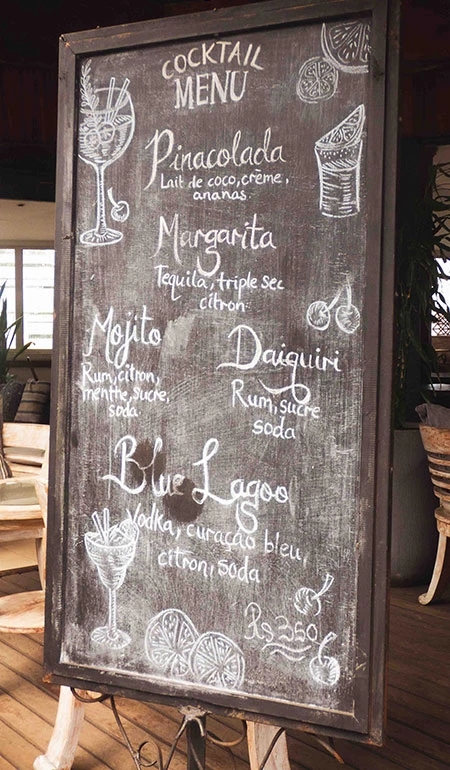 COCKTAIL
MENU
Pinacolada
Lait de coco, crème,
ananas.
Margarita
Tequila, triple sec
citron
Mojito
Rum, citron,
menthe, sucre,
soda
Daiquiri
Rum, sucre
soda
Blue Lagoo
Vodka, curaçao bleu,
citron, soda
Rs 350